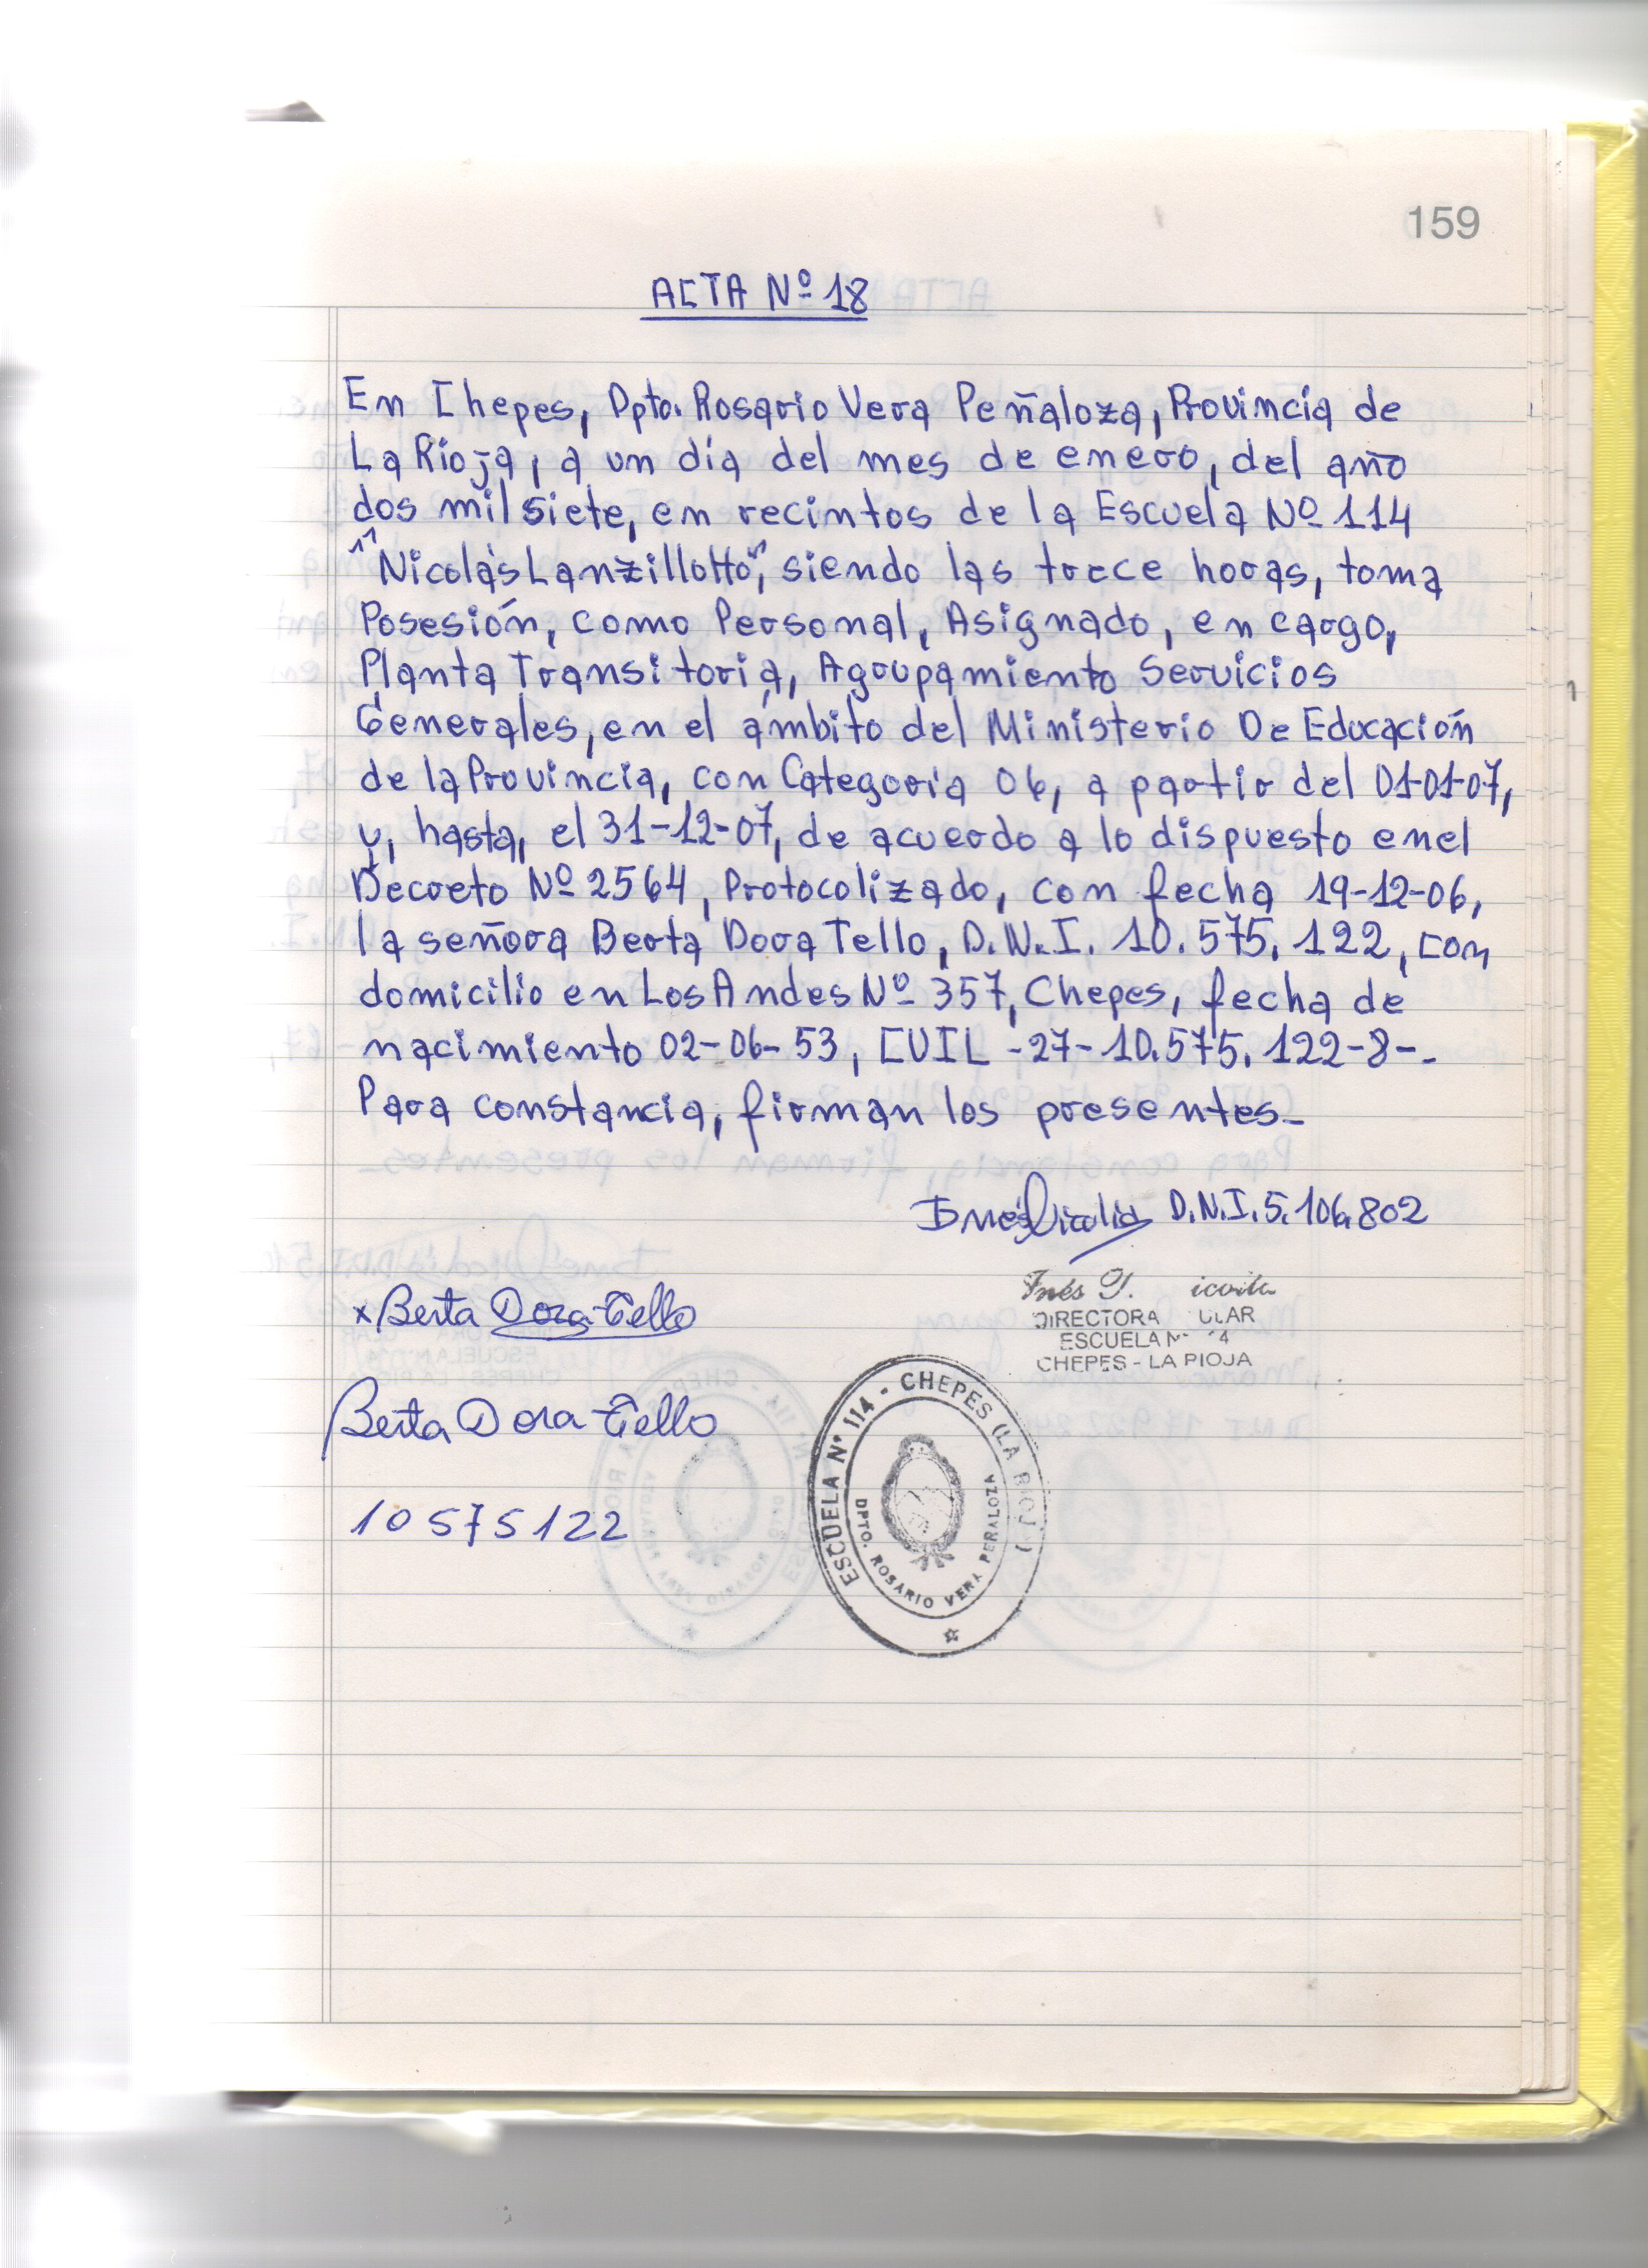 159
ACTA Nº 18
En Chepes, Dpto. Rosario Vera Peñaloza, Provincia de
La Rioja, a un día del mes de enero, del año
dos mil siete, en recintos de la Escuela Nº 114
"Nicolás Lanzillotto", siendo las trece horas, toma
Posesión, como Personal, Asignado, en cargo,
Planta Transitoria, Agrupamiento Servicios
Generales, en el ámbito del Ministerio De Educación
de la Provincia, con Categoría 06, a partir del 01-01-07,
y, hasta, el 31-12-07, de acuerdo a lo dispuesto en el
Decreto Nº 2564, Protocolizado, con fecha 19-12-06,
la señora Berta Dora Tello, D.N.I. 10.575.122, con
domicilio en Los Andes Nº 357, Chepes, fecha de
nacimiento 02-06-53, CUIL -27-10.575.122-8-.
Para constancia, firman los presentes-
Inés D.N.I. 5.106.802
x Berta Dora Tello
Inés
DIRECTORA
ESCUELA
CHEPES - LA RIOJA
Berta Dora Tello
10575122
ESCUELA Nº 114 - CHEPES (LA RIOJA)
DPTO. ROSARIO VERA PEÑALOZA